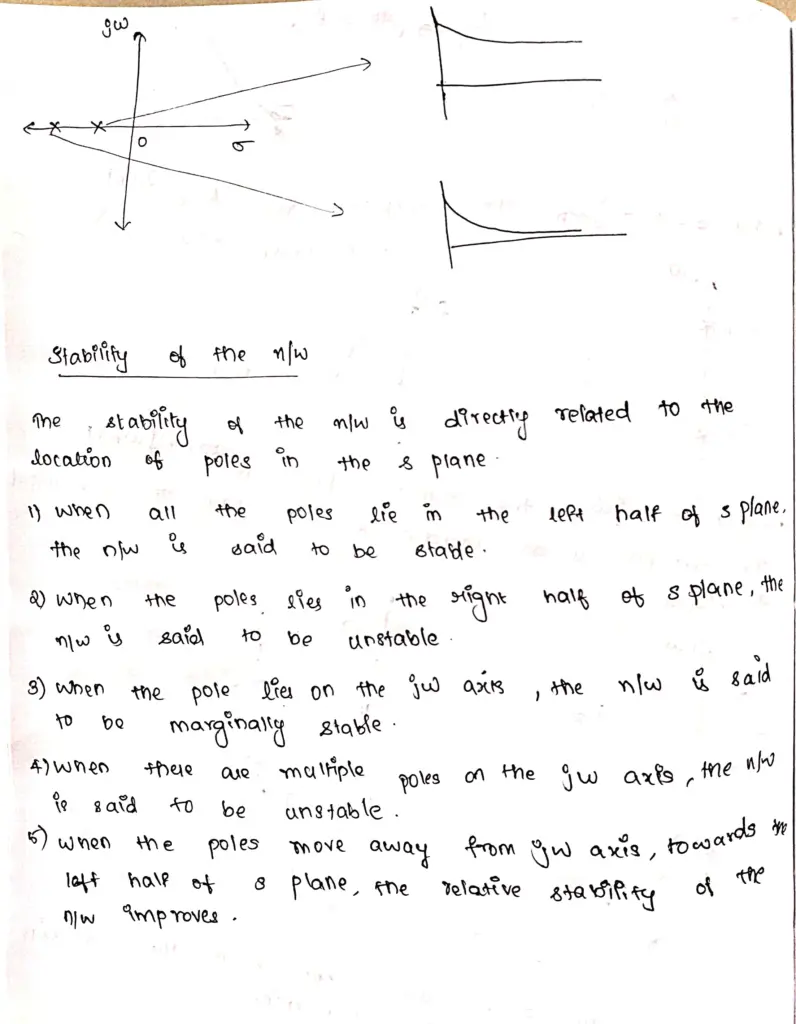 jω
0
σ
Stability of the n/w
The stability of the n/w is directly related to the
location of poles in the s plane.
1) When all the poles lie in the left half of s plane,
the n/w is said to be stable.
2) When the poles lies in the right half of s plane, the
n/w is said to be unstable.
3) When the pole lies on the jω axis, the n/w is said
to be marginally stable.
4) When there are multiple poles on the jω axis, the n/w
is said to be unstable.
5) When the poles move away from jω axis, towards the
left half of s plane, the relative stability of the
n/w improves.